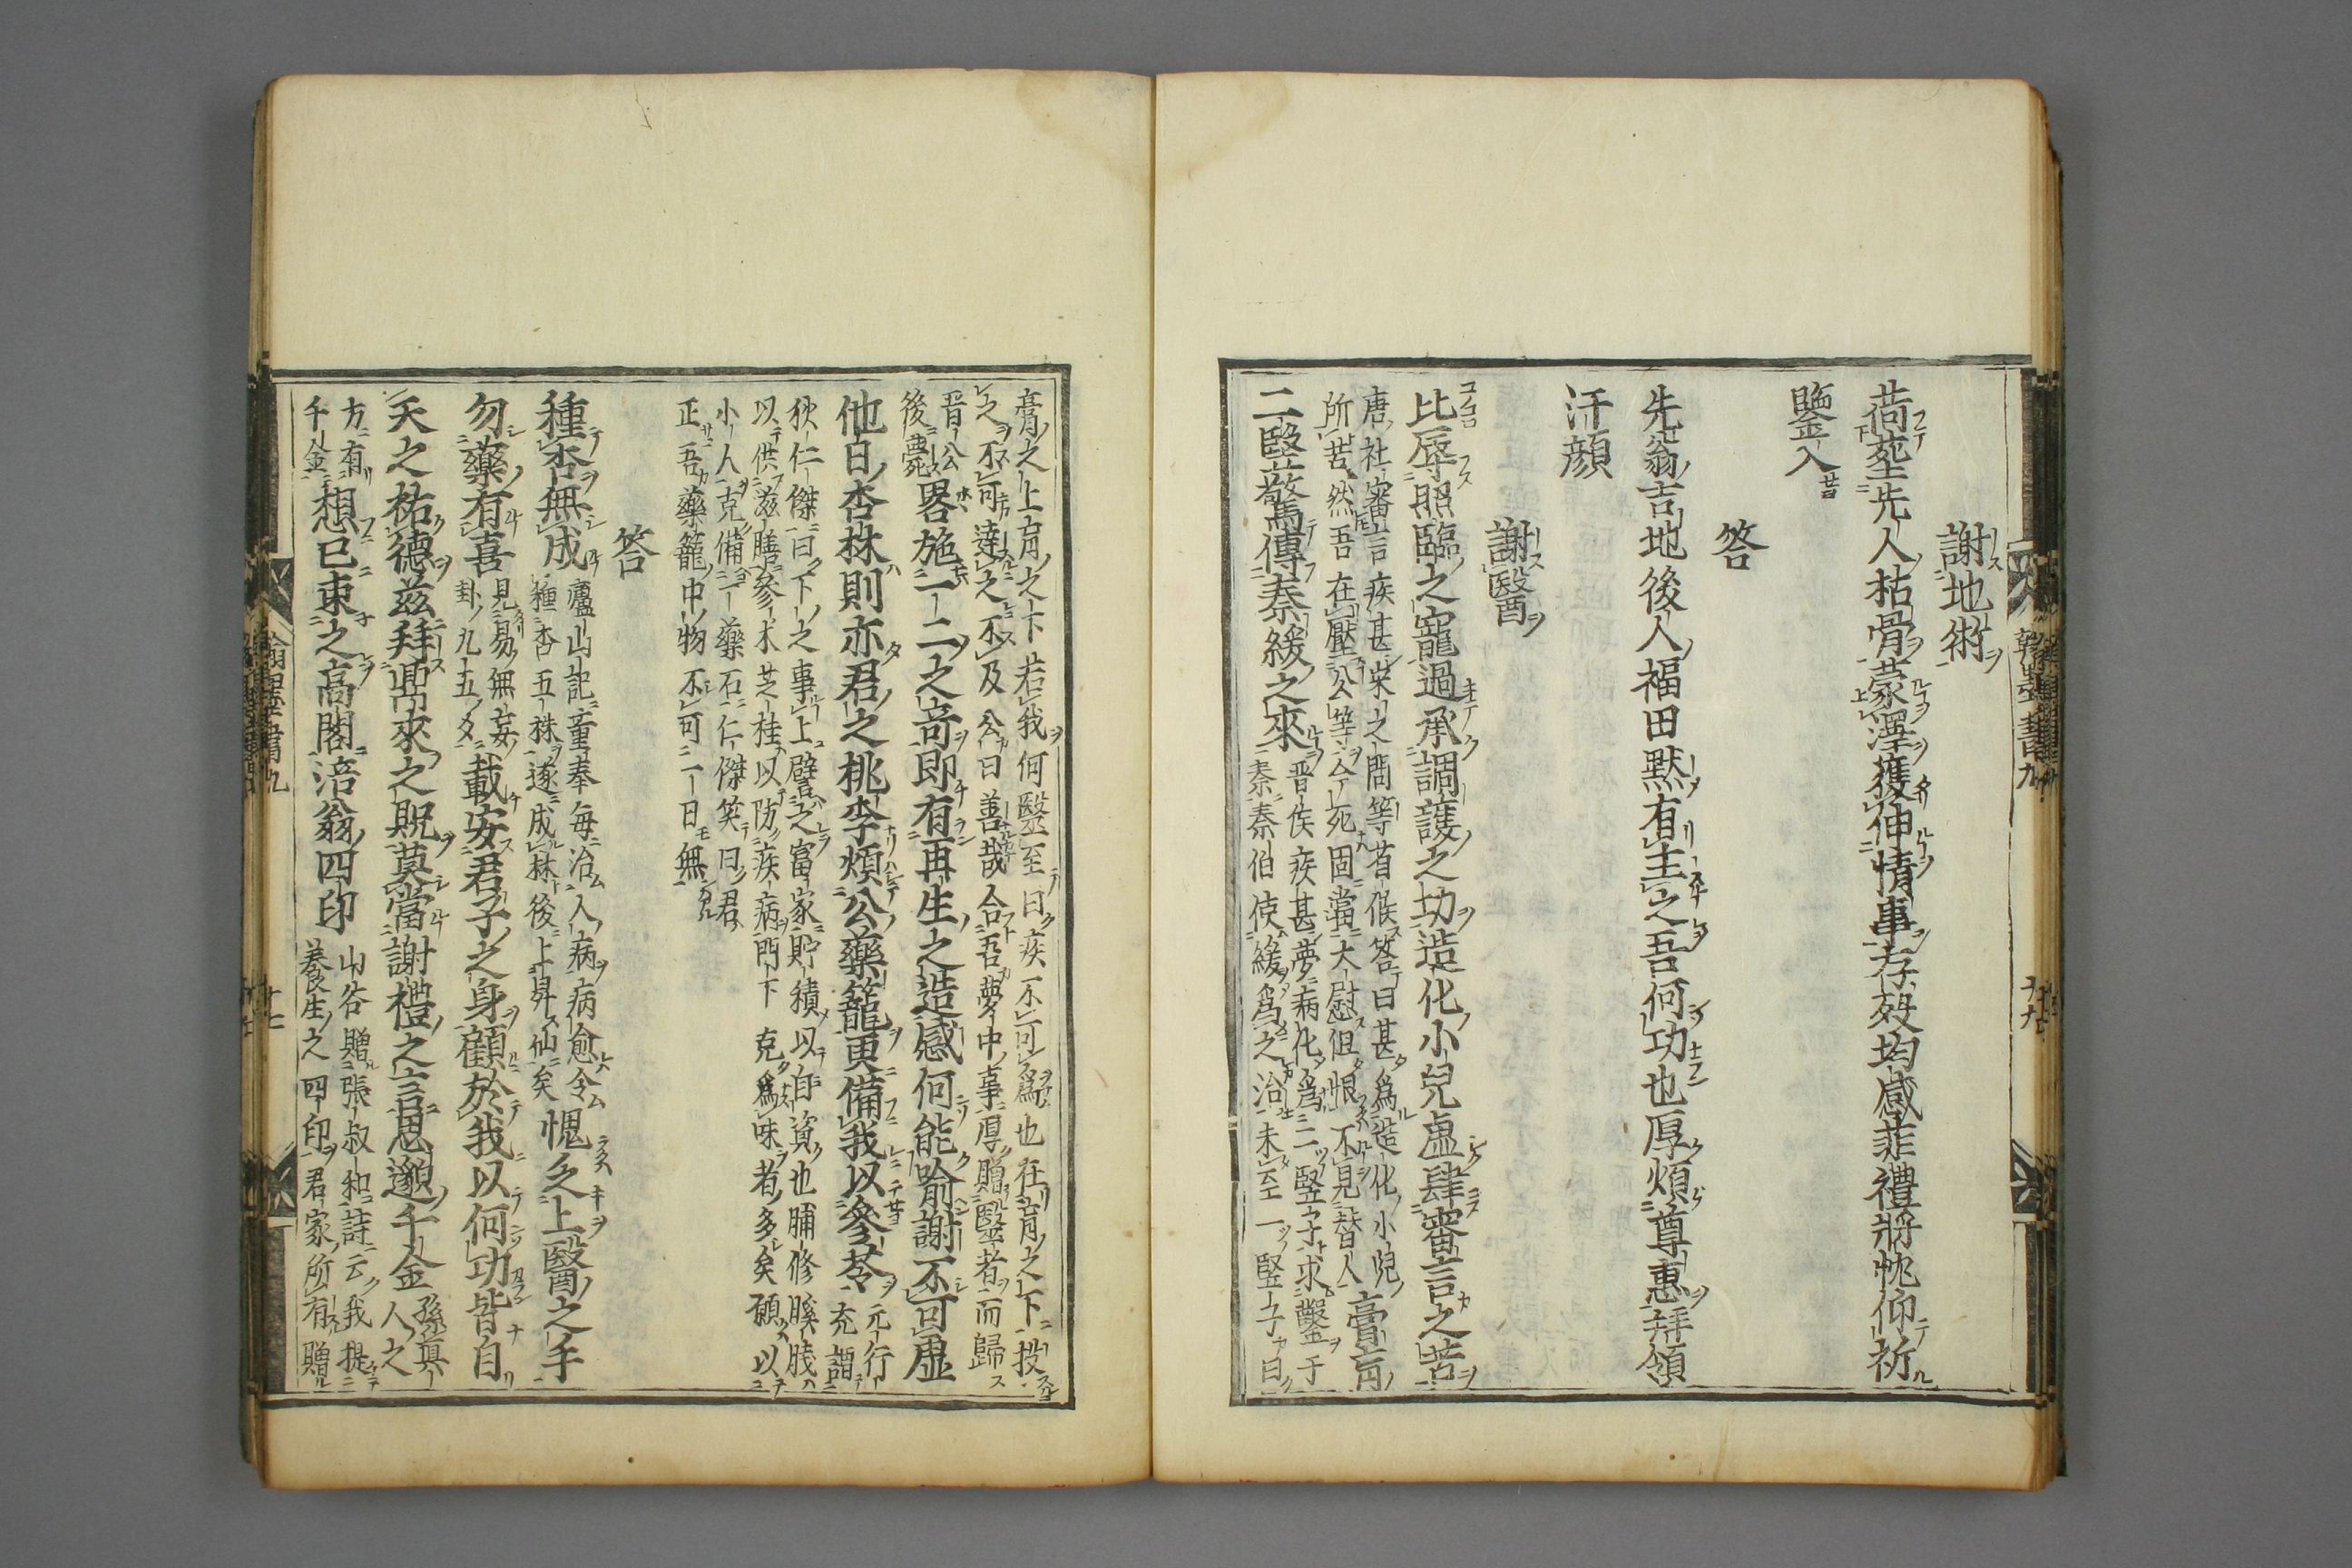 謝地術
荷塟先人枯骨蒙澤獲伸情事存殁均感菲禮將忱仰祈
鑒入
答
先翁吉地後人福田默有主之吾何功也厚煩尊惠拜領
汗顔
謝醫
比辱照臨之寵過承調護之功造化小兒虚肆審言之苦
唐杜審言疾甚宋之問等省候答曰甚爲造化小兒
所苦然吾在壓公等今死固當大慰但恨不見替人
膏肓
二豎驚傳秦緩之來
晋侯疾甚夢病化爲二豎子求鑿于
秦秦伯使緩爲之治未至一豎子曰
膏之上肓之下若我何醫至曰疾不可爲也在肓之下投
之不可達之不及公曰善哉合吾夢中事厚贈醫者而歸
晋公
後薨
畧施一二之竒即有再生之造感何能喻謝不可虚
他日杏林則亦君之桃李煩公藥籠更備我以參苓
元行
充謂
狄仁傑曰下之事上譬之富家貯積以自資也脯修膎胾
以供滋膳參木芝桂以防疾病門下克爲味者多矣願以
小人克備一藥石仁傑笑曰君
正吾藥籠中物不可一日無
答
種杏無成
廬山記董奉毎治人病病愈令
種杏五株遂成林後上昇仙矣
愧乏上醫之手
勿藥有喜
見易無妄
卦九五爻
載安君子之身顧於我以何功皆自
天之祐德兹拜鼎來之貺莫當謝禮之言思邈千金
孫真
人之
方有
千金
想已束之高閣涪翁四印
山谷贈張叔和詩云我提
養生之四印君家所有贈